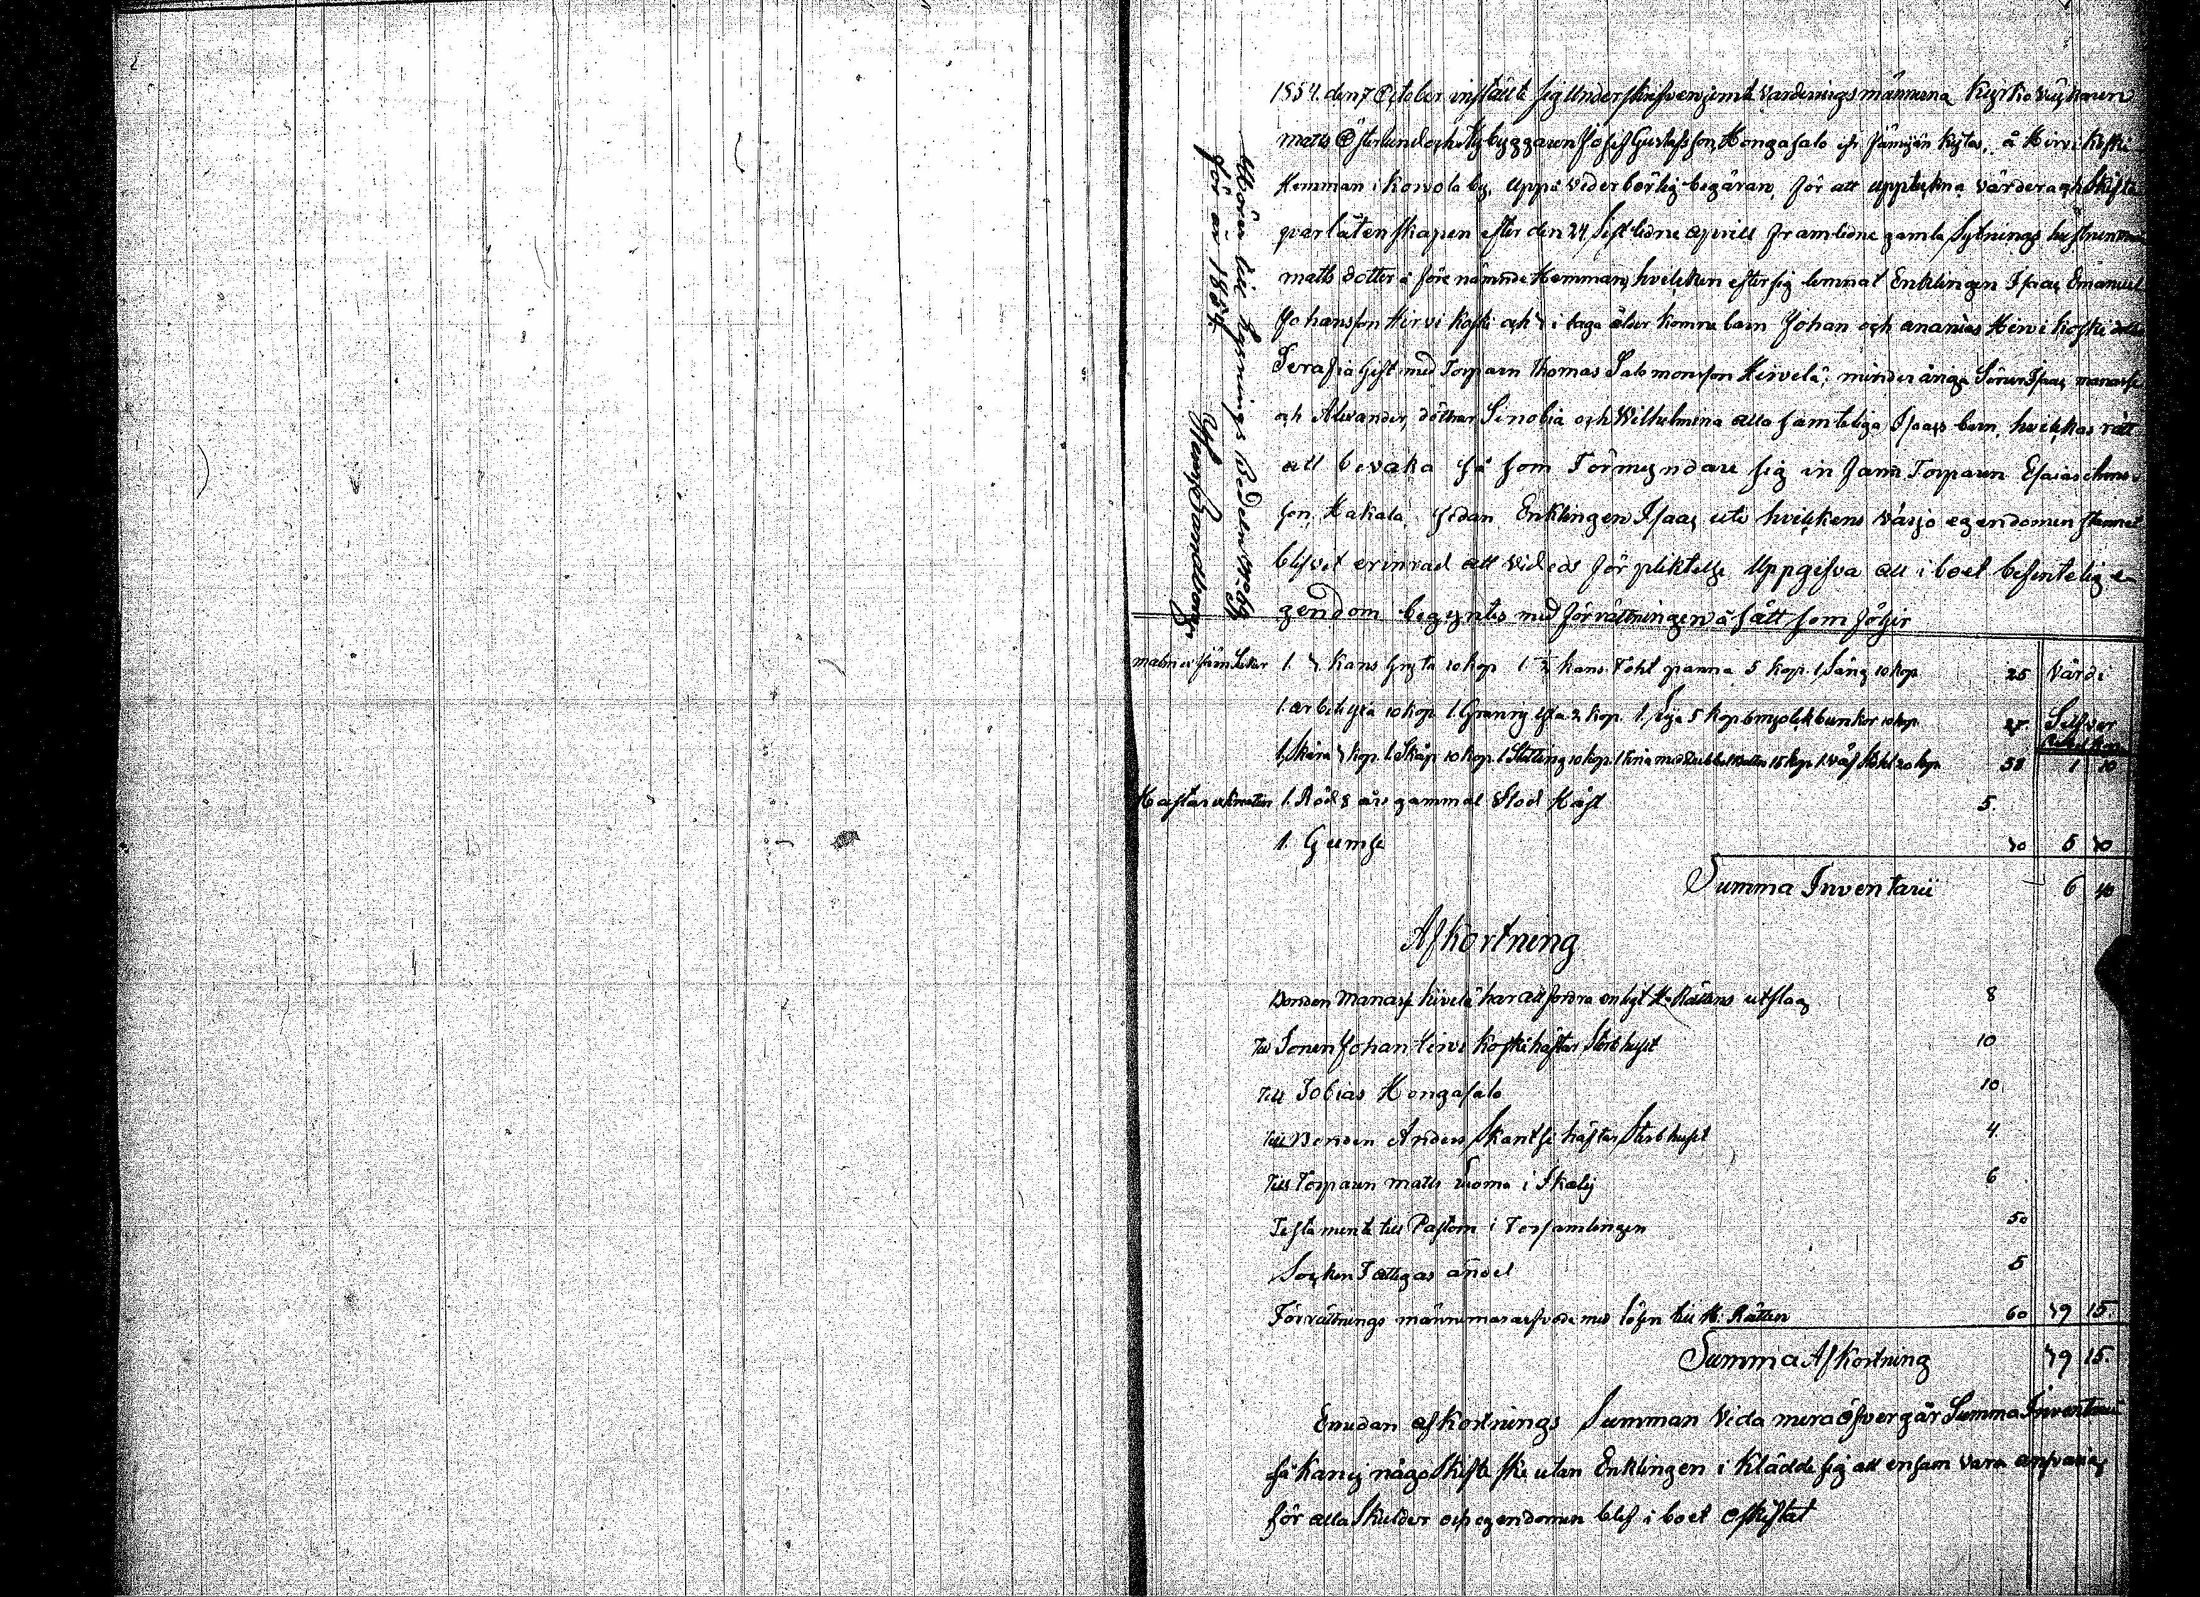 1854. den 7 October instälte sig Underskrifven jemte Värderingsmännena Kyrko Väktaren
Matts Österlund och Nybyggaren Josef Gustafsson Hongasalo å Hirvikoski
Hemman i Konola by, uppå vederbörlig begäran, för att uppteckna värdera och Skifta
qvarlåtenskapen efter den 24 Sistledne Aprill framledne gamla Sytnings
Matts dotter å förenämnde Hemman, hvilcken efter sig lemnat Enklingen Isaac Emanuel
Johansson Hirvikoski och i laga ålder komne barn Johan och Ananias Hirvikoski
Serafia Gift med Torparn Thomas Salomonsson Hirvelä; minderåriga Söner Isaac Manasse
och Alexander, döttrar Senobia och Wilhelmina alla samteliga Isaacs barn, hvilckas rätt
att bevaka så som Förmyndare sig infann Torparen Esaias
son Hakala, sedan Enklingen Isaac uti hvilckens värjo egendomen stannat
blifvit erinrad att vid eds förpliktelse Uppgifva all i boet befintelig e-
gendom begyntes med förrättningen å sätt som följer
Hörer till Lysnings Sedelen N:o
för år 1854.
Malm och Järn Saker 1. 7 kans Gryta 10 kop 1. kans Foht panna 5 kop. 1 Säng 10 kop 25 Värde
1. arbets yxa 10 kop 1. Grann yxa 2 kop. 1. Lija 5 kop 6 mjölckbunkor 10 kop 27. Silfver
1 Skära kop. 1. Skåp 10 kop. 1 Stelling 10 kop. 1 20 kop 58 1 10
Hästar och Kreatur 1. Röd 8 års gammal Stod Häst 5.
1. Gumse 70 5 70
Summa Inventarii 6 80
Afkortning
Bonden Manass Kivelä har att fordra enligt H. Rättens utslag 8
Till Sonen Johan Hirvikoski häftar Sterbhuset 10
Till Tobias Hongasalo 10
Till Bonden Anders Skantsi häftar Sterbhuset 4
Till Torparen Matts Luoma i Skaby 6
Testamente till Pastorn i Församlingen 50
Socken Fattigas andel 5
Förrättnings männernas arfvode med lösen till H. Rätten 60 39 15.
Summa Afkortning 39 15.
Emedan afkortnings Summan vida mera öfvergår Summa Inventarii
så kan ej någo Skifte ske utan Enklingen iklädde sig att ensam vara ansvarig
för alla Skulder och egendomen blef i boet oskiftat